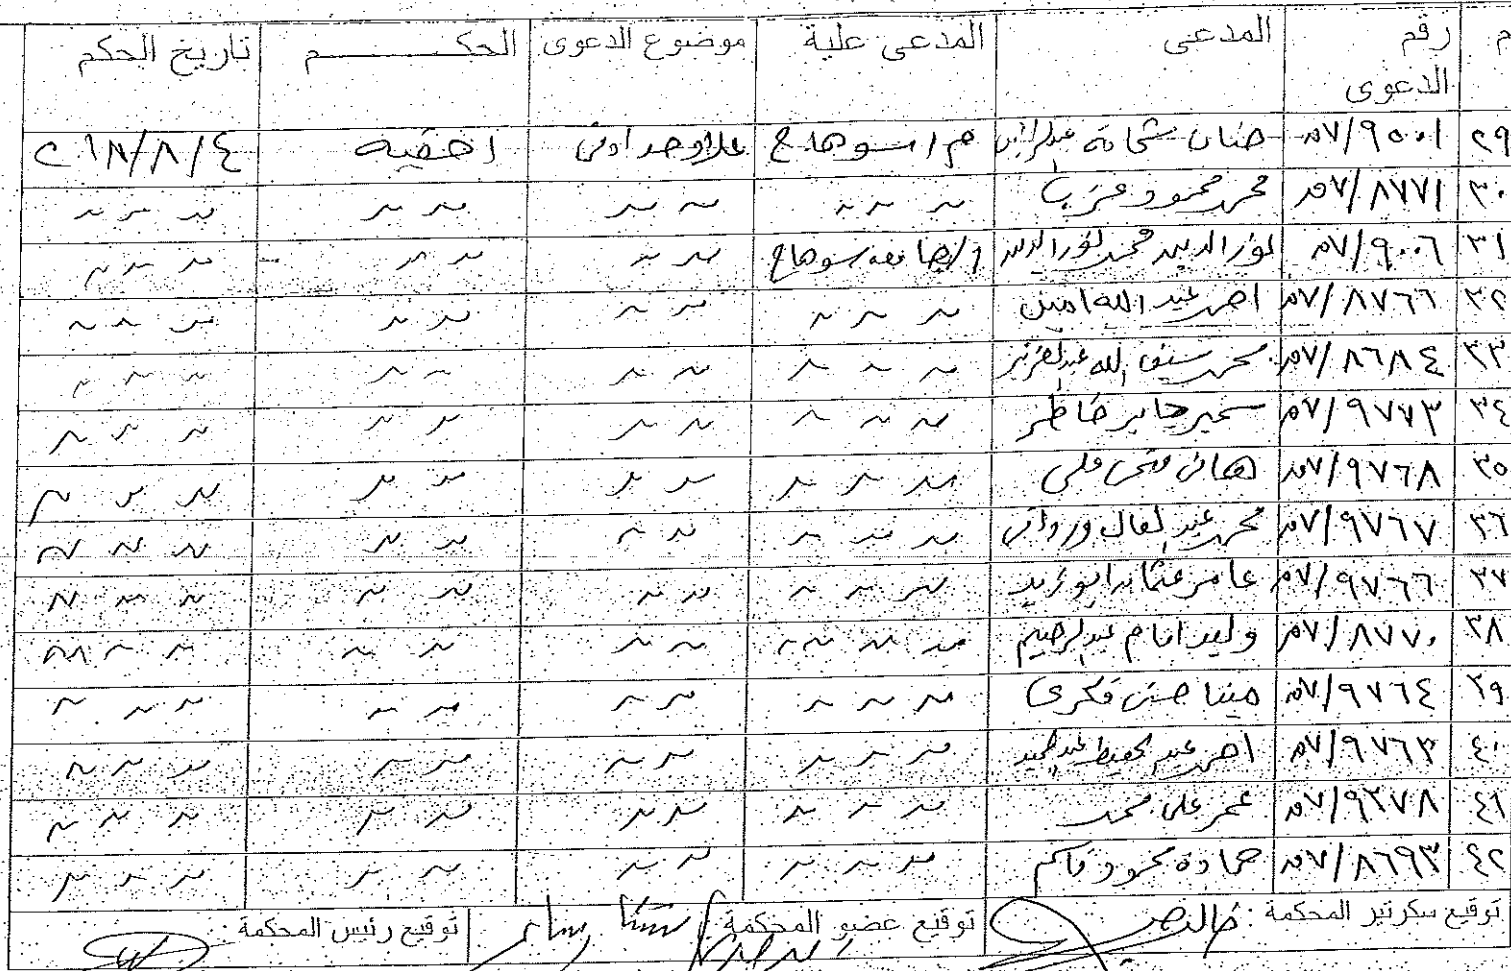 م رقم الدعوى المدعى المدعى علية موضوع الدعوى الحكــــــم تاريخ الحكم
٢٩ ٩٥٠١/٧ق حنان شحاتة م/سوهاج علاوحدادنى احقيه ٢٠١٨/٨/٤
٣٠ ٨٧٧١/٧ق محمد محمود ~ ~ ~ ~ ~ ~ ~ ~ ~ ~
٣١ ٩٠٠٦/٧ق نور الدين محمد نور الدين سوهاج ~ ~ ~ ~ ~ ~ ~
٣٢ ٨٧٦٦/٧ق احمد عبد الله امين ~ ~ ~ ~ ~ ~ ~ ~ ~ ~
٣٣ ٨٦٨٤/٧ق محمد سيف الله عبدالعزيز ~ ~ ~ ~ ~ ~ ~ ~ ~ ~
٣٤ ٩٧٧٣/٧ق سمير جابر ~ ~ ~ ~ ~ ~ ~ ~ ~ ~
٣٥ ٩٧٦٨/٧ق هانى فتحى على ~ ~ ~ ~ ~ ~ ~ ~ ~ ~
٣٦ ٩٧٦٧/٧ق محمد عبد العال ~ ~ ~ ~ ~ ~ ~ ~ ~ ~
٣٧ ٩٧٦٦/٧ق عامر عثمان ابوزيد ~ ~ ~ ~ ~ ~ ~ ~ ~ ~
٣٨ ٨٧٧٠/٧ق وليد امام عبدالرحيم ~ ~ ~ ~ ~ ~ ~ ~ ~ ~
٣٩ ٩٧٦٤/٧ق مينا فكرى ~ ~ ~ ~ ~ ~ ~ ~ ~ ~
٤٠ ٩٧٦٣/٧ق احمد عبد الحفيظ عبدالحميد ~ ~ ~ ~ ~ ~ ~ ~ ~ ~
٤١ ٩٢٧٨/٧ق عمر على محمد ~ ~ ~ ~ ~ ~ ~ ~ ~ ~
٤٢ ٨٦٩٣/٧ق حمادة محمود قاسم ~ ~ ~ ~ ~ ~ ~ ~ ~ ~
توقيع سكرتير المحكمة : توقيع عضو المحكمة توقيع رئيس المحكمة :